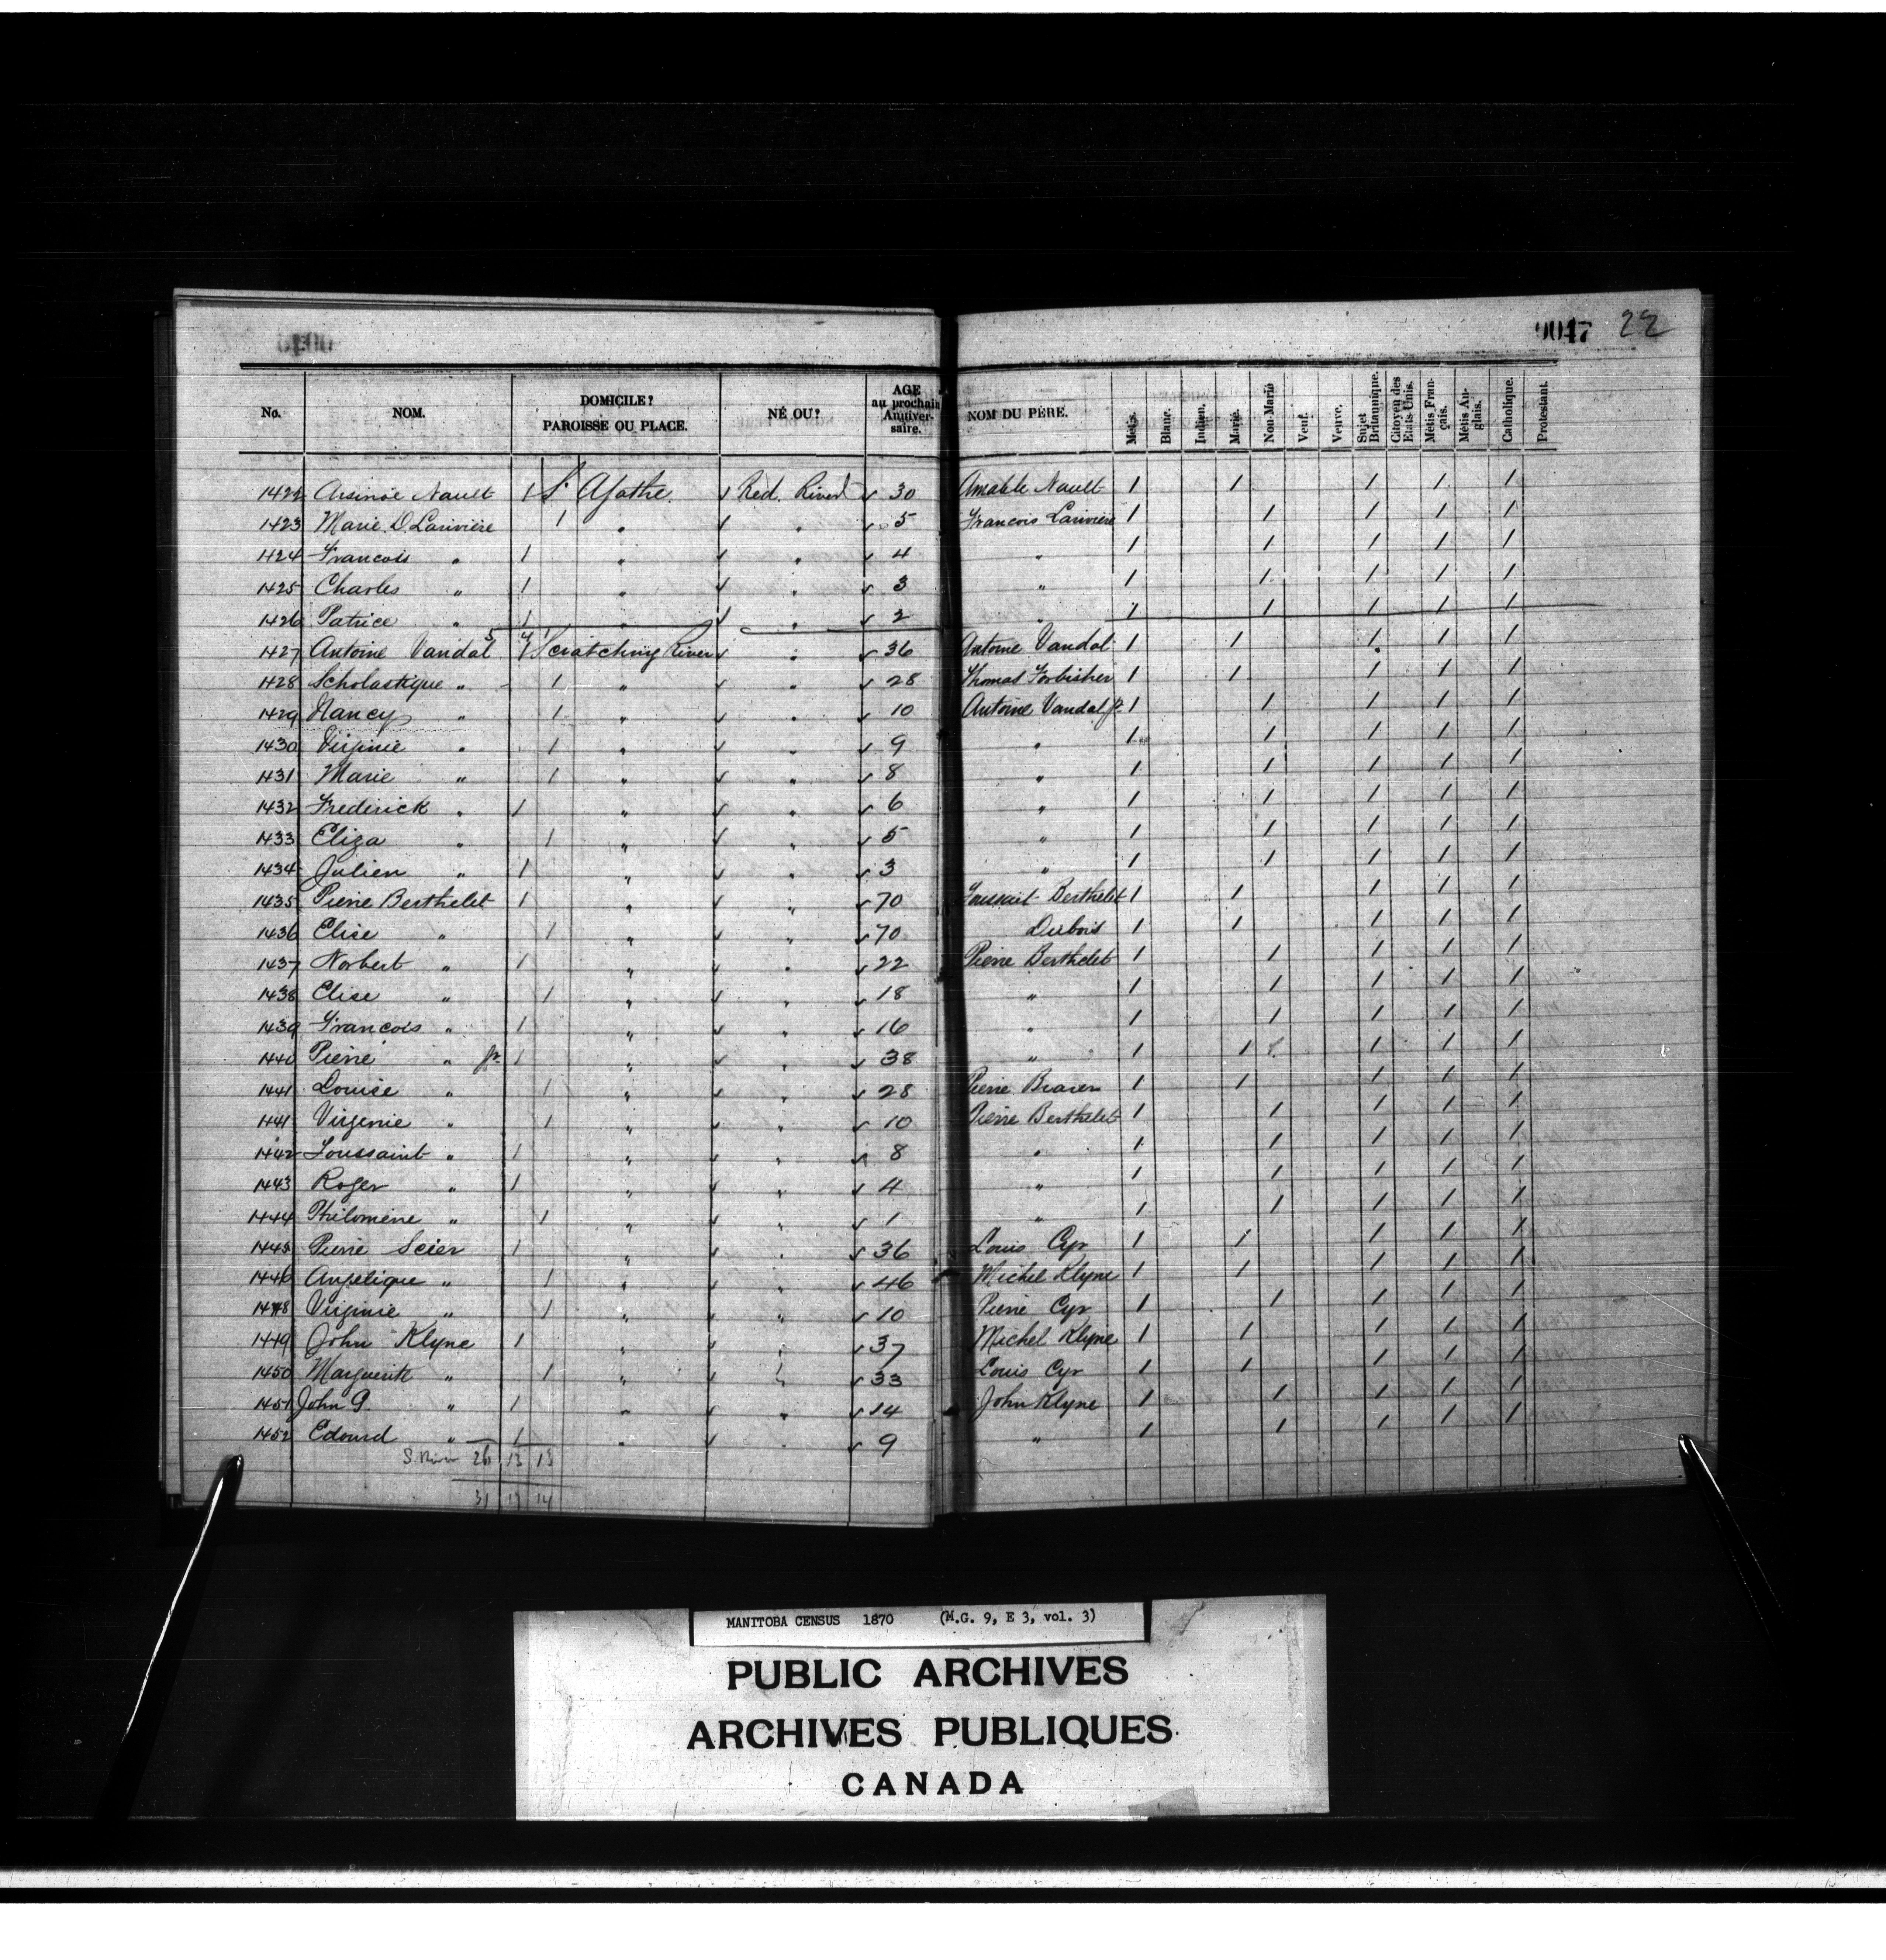 0047 22
No. NOM. DOMICILE? PAROISSE OU PLACE. NÉ OU? AGE au prochain Anniversaire. NOM DU PÈRE. Metis. Blanc. Indien. Marié. Non-Marié Veuf. Veuve. Sujet Britannique. Citoyen des Etats-Unis. Métis Français. Métis Anglais. Catholique. Protestant.
1422 Arsinöe Nault 1 St Agathe. ✓ Red River ✓ 30 Amable Nault 1 1 1 1 1
1423 Marie D. Lariviere 1 " ✓ " ✓ 5 Francois Lariviere 1 1 1 1 1
1424 Francois " 1 " ✓ " ✓ 4 " 1 1 1 1 1
1425 Charles " 1 " ✓ " ✓ 3 " 1 1 1 1 1
1426 Patrice " 1 " ✓ " ✓ 2 " 1 1 1 1 1
1427 Antoine Vandal 5 4 1 Scratching River ✓ " ✓ 36 Antoine Vandal 1 1 1 1 1
1428 Scholastique " 1 " ✓ " ✓ 28 Thomas Forbisher 1 1 1 1 1
1429 Nancy " 1 " ✓ " ✓ 10 Antoine Vandal jr. 1 1 1 1 1
1430 Virginie " 1 " ✓ " ✓ 9 " 1 1 1 1 1
1431 Marie " 1 " ✓ " ✓ 8 " 1 1 1 1 1
1432 Frederick " 1 " ✓ " ✓ 6 " 1 1 1 1 1
1433 Eliza " 1 " ✓ " ✓ 5 " 1 1 1 1 1
1434 Julien " 1 " ✓ " ✓ 3 " 1 1 1 1 1
1435 Pierre Berthelet 1 " ✓ " ✓ 70 Toussait Berthelet 1 1 1 1 1
1436 Elise " 1 " ✓ " ✓ 70 Dubois 1 1 1 1 1
1437 Norbert " 1 " ✓ " ✓ 22 Pierre Berthelet 1 1 1 1 1
1438 Elise " 1 " ✓ " ✓ 18 " 1 1 1 1 1
1439 Francois " 1 " ✓ " ✓ 16 " 1 1 1 1 1
1440 Pierre " jr. 1 " ✓ " ✓ 38 " 1 1 1 1 1
1441 Louise " 1 " ✓ " ✓ 28 Pierre 1 1 1 1 1
1441 Virgenie " 1 " ✓ " ✓ 10 Pierre Berthelet 1 1 1 1 1
1442 Toussaint " 1 " ✓ " ✓ 8 " 1 1 1 1 1
1443 Roger " 1 " ✓ " ✓ 4 " 1 1 1 1 1
1444 Philomene " 1 " ✓ " ✓ 1 " 1 1 1 1 1
1445 Pierre Scier 1 " ✓ " ✓ 36 Louis Cyr 1 1 1 1 1
1446 Angelique " 1 " ✓ " ✓ 46 Michel Klyne 1 1 1 1 1
1448 Virginie " 1 " ✓ " ✓ 10 Pierre Cyr 1 1 1 1 1
1449 John Klyne 1 " ✓ " ✓ 37 Michel Klyne 1 1 1 1 1
1450 Marguerite " 1 " ✓ " ✓ 33 Louis Cyr 1 1 1 1 1
1451 John G. " 1 " ✓ " ✓ 14 John Klyne 1 1 1 1 1
1452 Edourd " 1 " ✓ " ✓ 9 " 1 1 1 1 1
S. River 26 13 13
31 17 14
MANITOBA CENSUS 1870 (M.G. 9, E 3, vol. 3)
PUBLIC ARCHIVES
ARCHIVES PUBLIQUES
CANADA